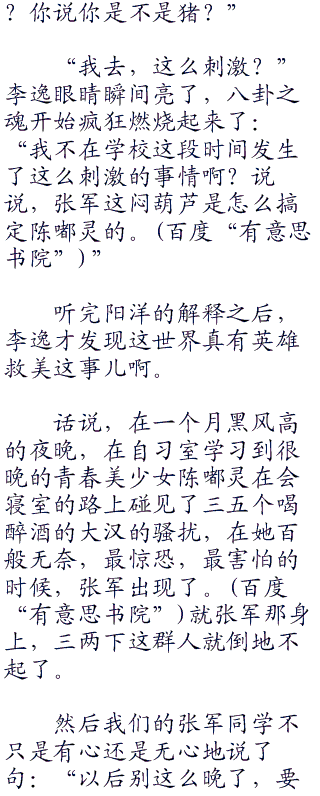 ？你说你是不是猪？”
“我去，这么刺激？”
李逸眼睛瞬间亮了，八卦之
魂开始疯狂燃烧起来了：
“我不在学校这段时间发生
了这么刺激的事情啊？说
说，张军这闷葫芦是怎么搞
定陈嘟灵的。(百度“有意思
书院”)”
听完阳洋的解释之后，
李逸才发现这世界真有英雄
救美这事儿啊。
话说，在一个月黑风高
的夜晚，在自习室学习到很
晚的青春美少女陈嘟灵在会
寝室的路上碰见了三五个喝
醉酒的大汉的骚扰，在她百
般无奈，最惊恐，最害怕的
时候，张军出现了。(百度
“有意思书院”)就张军那身
上，三两下这群人就倒地不
起了。
然后我们的张军同学不
只是有心还是无心地说了
句：“以后别这么晚了，要